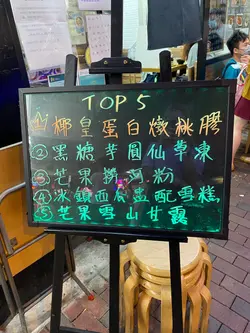 TOP 5
① 椰皇蛋白燉桃膠
② 黑糖芋圓仙草凍
③ 芒果撈河粉
④ 冰鎮西瓜盅配雪糕
⑤ 芒果雪山甘露